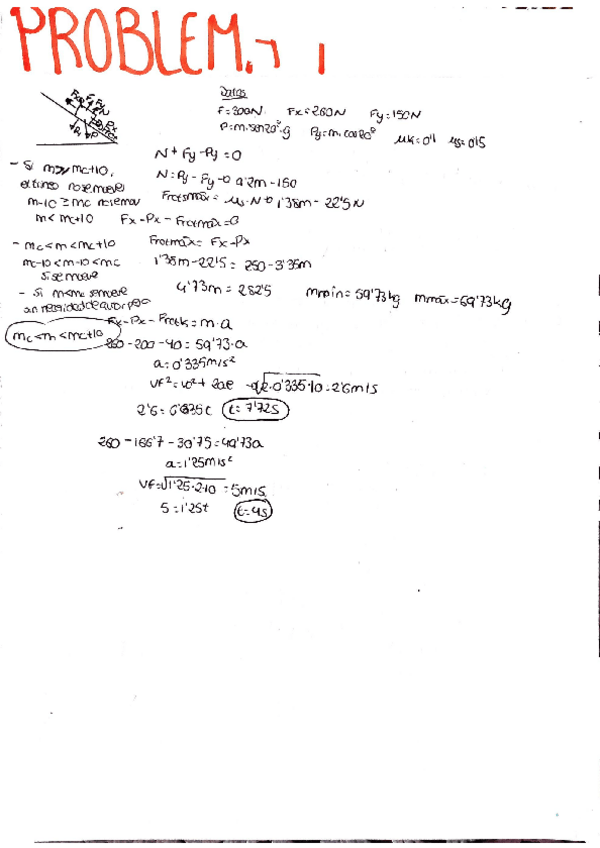 PROBLEM. 1
Datos
F=300N Fx=260N Fy=150N
P=m.sen20º.g Py=m.cos20º μk=0'1 μs=0'15
N + Fy - Py = 0
- Si m>mc+10,
N = Py - Fy → 9'2m - 150
m-10 ≥ mc no se mov
Frotsmáx = μs·N → 1'38m - 22'5N
m < mc+10 Fx - Px - Frotmáx = 0
- mc<m<mc+10 Frotmáx = Fx - Px
mc-10<m-10<mc 1'38m - 22'5 = 260 - 3'35m
si se mueve
4'73m = 282'5 mmin = 59'73kg mmáx = 69'73kg
- Si m<mc se mueve
sin necesidad de
Fx - Px - Frotk = m·a
mc<m<mc+10
260 - 200 - 40 = 59'73·a
a = 0'335m/s²
VF² = vo² + 2ae √2·0'335·10 = 2'6m/s
2'6 = 0'335t t = 7'72s
260 - 166'7 - 30'75 = 49'73a
a = 1'25m/s²
VF = √1'25·2·10 = 5m/s
5 = 1'25t t = 4s